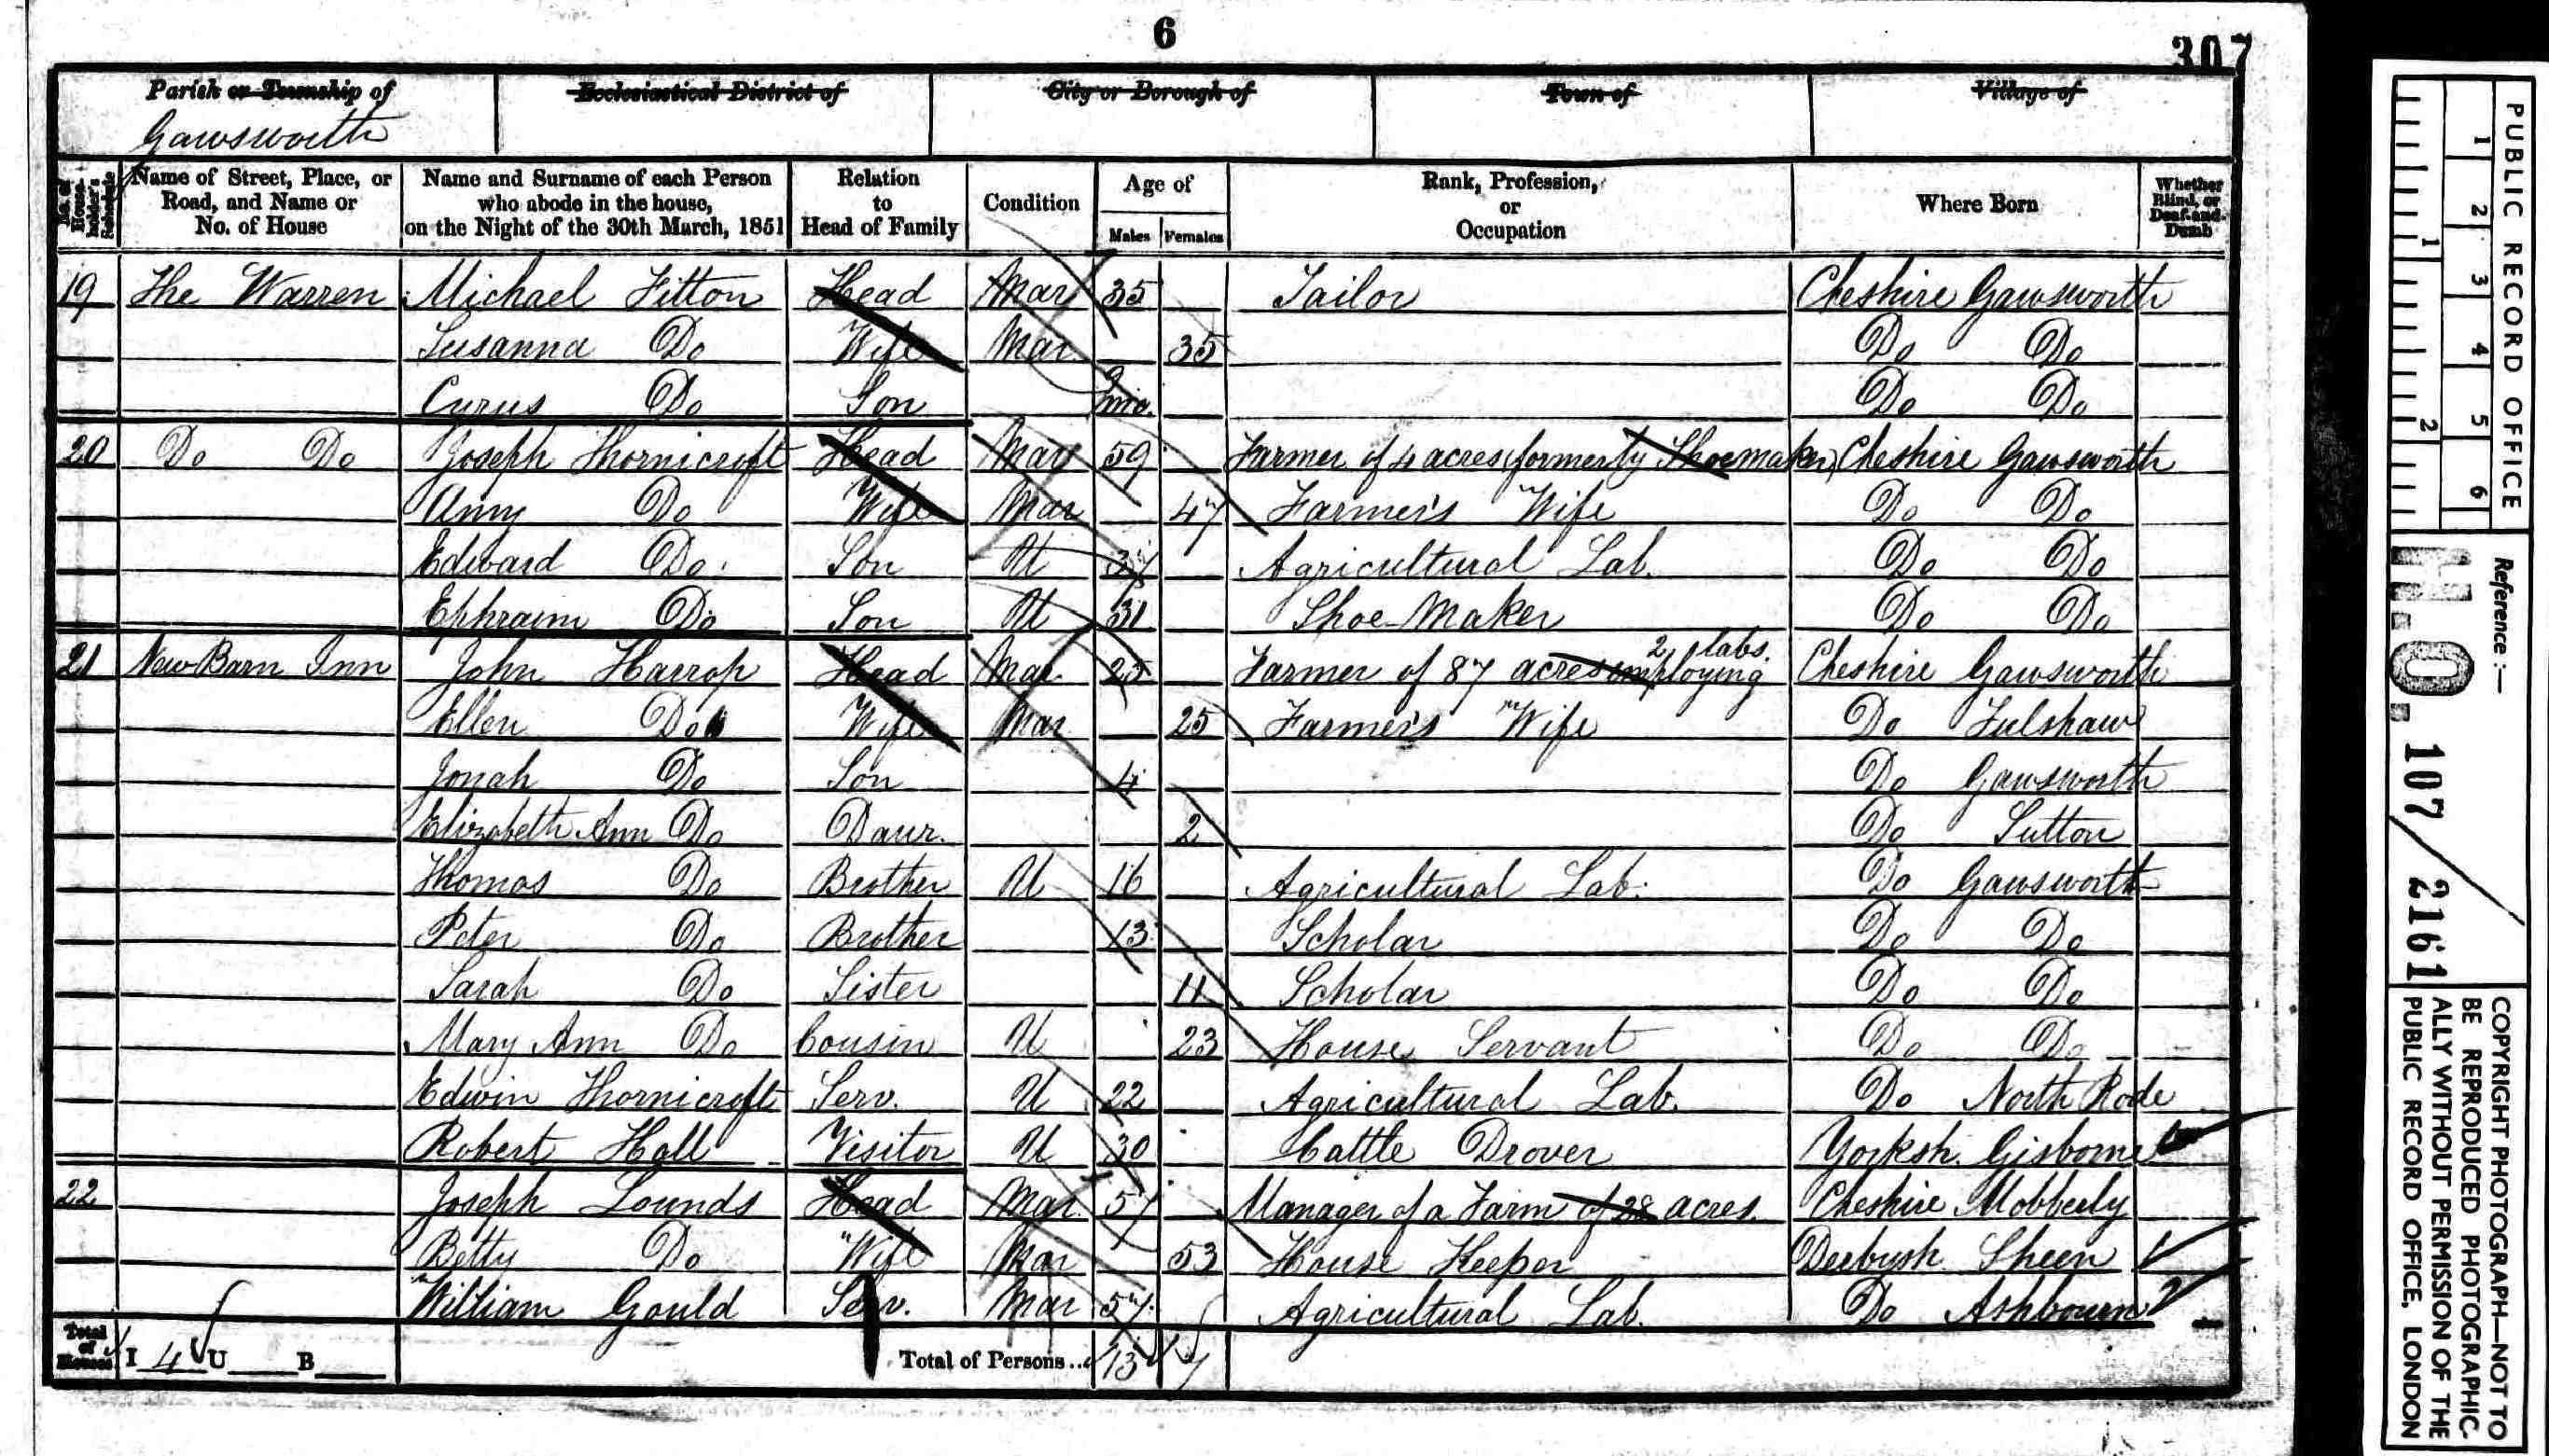 6
307
Parish or Township of
Gawsworth
Ecclesiastical District of
City or Borough of
Town of
Village of
No. of House-holder's Schedule
Name of Street, Place, or Road, and Name or No. of House
Name and Surname of each Person who abode in the house, on the Night of the 30th March, 1851
Relation to Head of Family
Condition
Age of
Males Females
Rank, Profession, or Occupation
Where Born
Whether Blind, or Deaf-and-Dumb
19 The Warren Michael Fitton Head Mar 35 Tailor Cheshire Gawsworth
Susanna Do Wife Mar 35 Do Do
Cyrus Do Son mo. Do Do
20 Do Do Joseph Thornicroft Head Mar 59 Farmer of 4 acres (formerly Shoemaker) Cheshire Gawsworth
Amy Do Wife Mar 47 Farmer's Wife Do Do
Edward Do. Son U Agricultural Lab. Do Do
Ephraim Do Son U 31 Shoe-Maker Do Do
21 New Barn Inn John Harrop Head Mar 25 Farmer of 87 acres employing 2 labs. Cheshire Gawsworth
Ellen Do Wife Mar 25 Farmer's Wife Do Fulshaw
Jonah Do Son 4 Do Gawsworth
Elizabeth Ann Do Daur. 2 Do Sutton
Thomas Do Brother U 16 Agricultural Lab. Do Gawsworth
Peter Do Brother 13 Scholar Do Do
Sarah Do Sister 11 Scholar Do Do
Mary Ann Do Cousin U 23 House Servant Do Do
Edwin Thornicroft Serv. U 22 Agricultural Lab. Do North Rode
Robert Hall Visitor U 30 Cattle Drover Yorksh. Gisborne
22 Joseph Lounds Head Mar 57 Manager of a Farm of 28 acres. Cheshire Mobberly
Betty Do Wife Mar 53 House Keeper Derbysh Sheen
William Gould Serv. Mar 57 Agricultural Lab. Do Ashbourn
Total of Houses I 4 U B Total of Persons... 13 7
PUBLIC RECORD OFFICE
1 2 3 4 5 6
1 2
Reference:—
H.O. 107/2161
COPYRIGHT PHOTOGRAPH—NOT TO
BE REPRODUCED PHOTOGRAPHIC-
ALLY WITHOUT PERMISSION OF THE
PUBLIC RECORD OFFICE, LONDON